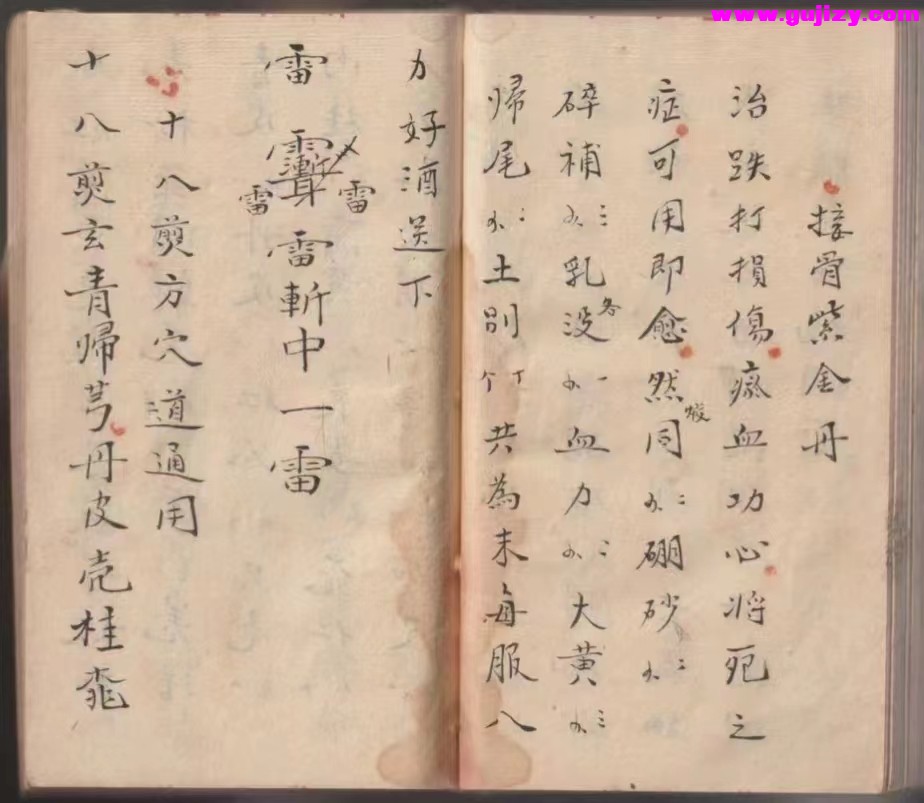 www.gujizy.com
接骨紫金丹
治跌打損傷瘀血功心將死之
症可用即愈然同煅〢硼砂〢
碎補〣乳没各一血力〢大黄〣
帰尾〢土別个共為末每服八
力好酒送下
雷雷雷雷斬中一雷
十八剪方穴道通用
十八剪玄青帰芎丹皮壳桂